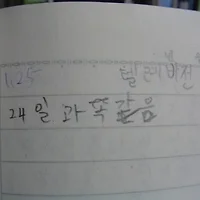 1.25 텔레비전
24일 과 똑같음